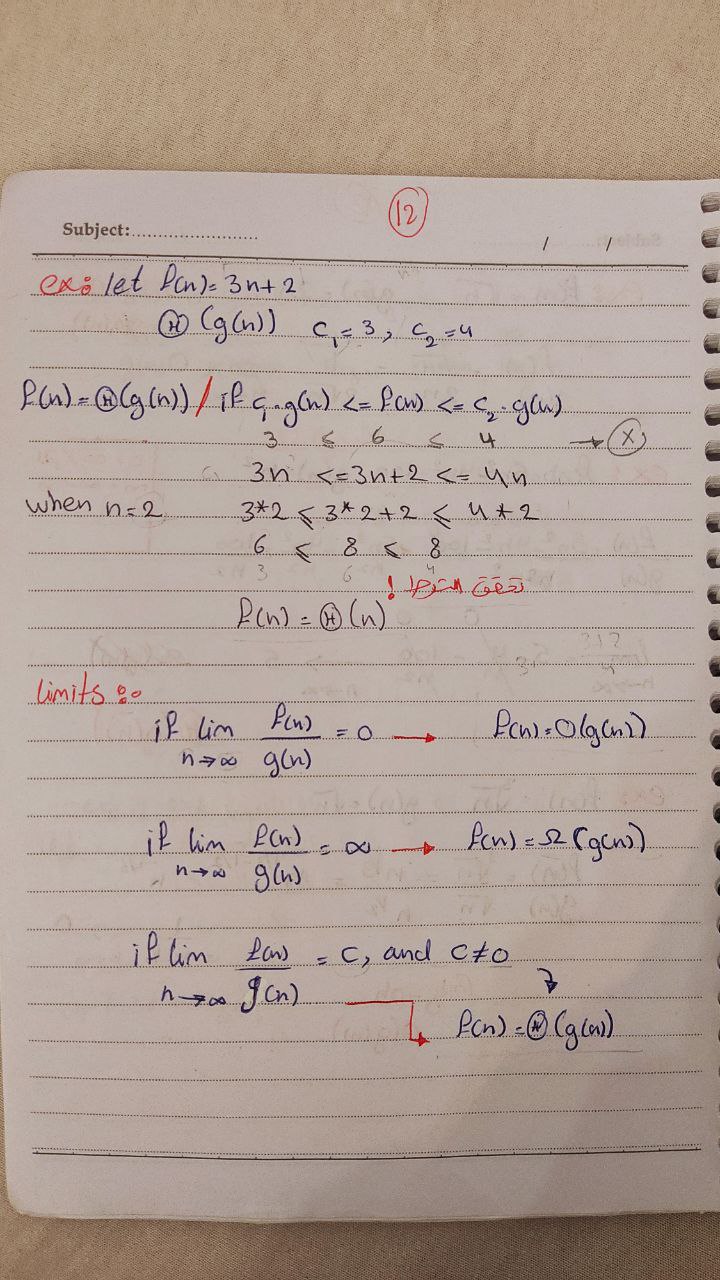 12
Subject:........................
/ /
ex: let f(n)= 3n+2
Ⓗ (g(n)) c₁=3, c₂=4
f(n)=Ⓗ(g(n)) / if c₁.g(n) <= f(n) <= c₂.g(n)
3 ≤ 6 ≤ 4 → X
3n <=3n+2 <= 4n
when n=2 3*2 ≤ 3*2+2 ≤ 4*2
6 ≤ 8 ≤ 8
تحقق الشرط !
f(n) = Ⓗ(n)
limits :
if lim n→∞ f(n)/g(n) = 0 → f(n)=O(g(n))
if lim n→∞ f(n)/g(n) = ∞ → f(n)=Ω(g(n))
if lim n→∞ f(n)/g(n) = C, and C≠0
f(n)=Ⓗ(g(n))